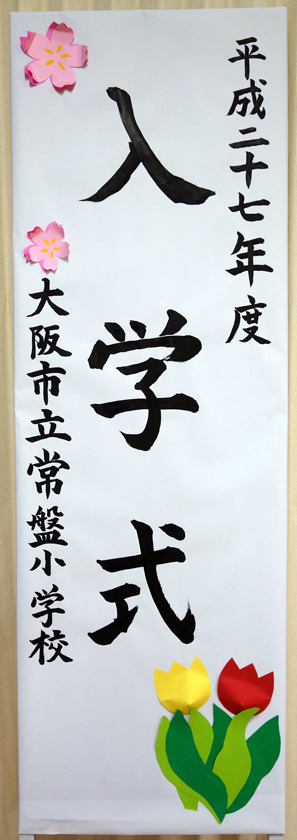 平成二十七年度
入学式
大阪市立常盤小学校